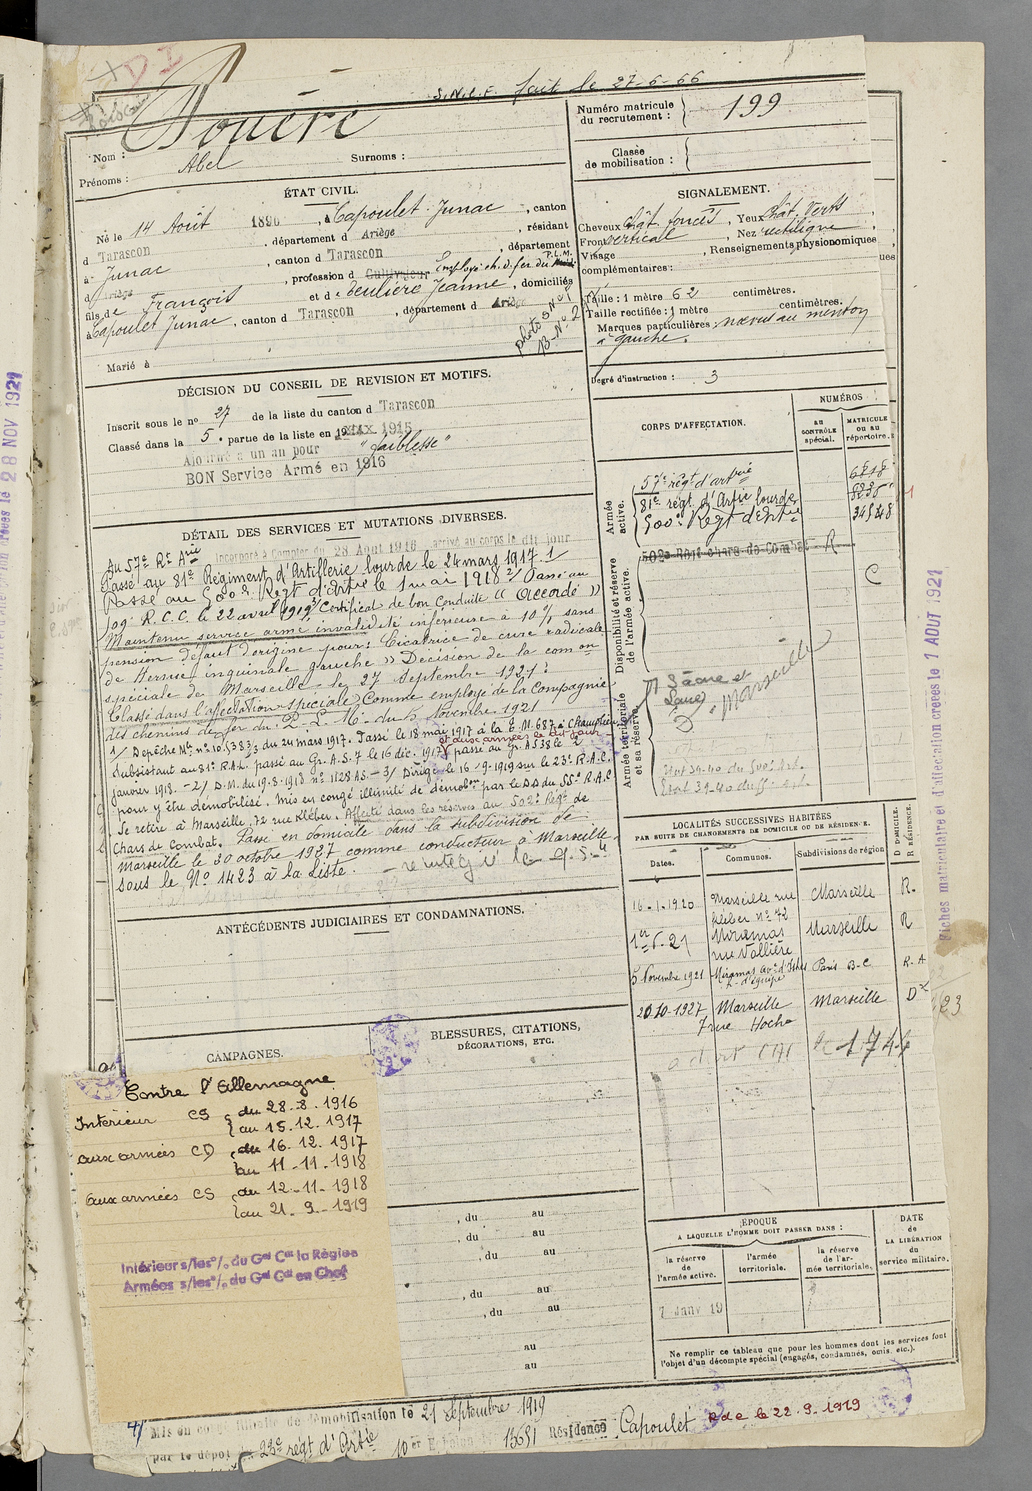 S.N.C.F. fait le 27-6-66
Nom : Pouéré
Prénoms : Abel Surnoms :
Numéro matricule du recrutement : 199
Classe de mobilisation :
ÉTAT CIVIL.
Né le 14 Août 1896, à Capoulet-Junac, canton
d Tarascon, département d Ariège, résidant
à Junac, canton d Tarascon, département
d Ariège, profession d Cultivateur Employé ch. d. fer du Midi P.L.M.
fils de François et de Teulière Jeanne, domiciliés
à Capoulet Junac, canton d Tarascon, département d Ariège
photo S N° 1
B-N° 2
Marié à
SIGNALEMENT.
Cheveux chât. foncés, Yeux chât. Verts
Front vertical, Nez rectiligne,
Visage , Renseignements physionomiques
complémentaires :
Taille : 1 mètre 62 centimètres.
Taille rectifiée : 1 mètre centimètres.
Marques particulières : nævus au menton
à gauche.
Degré d'instruction : 3
DÉCISION DU CONSEIL DE REVISION ET MOTIFS.
Inscrit sous le no 27 de la liste du canton d Tarascon
Classé dans la 5e partie de la liste en 1915
Ajourné à un an pour "faiblesse"
BON Service Armé en 1916
CORPS D'AFFECTATION.
NUMÉROS
au contrôle spécial.
MATRICULE ou au répertoire.
Armée active.
57e régt d'artrie 6818
81e régt d'Artie lourde 8235
500e Régt d'Artie 34548
Disponibilité et réserve de l'armée active.
502e Régt chars de Combat R
C
Armée territoriale et sa réserve.
Saône et
Marseille
DÉTAIL DES SERVICES ET MUTATIONS DIVERSES.
Au 57e Rt Arie Incorporé à Compter du 28 Août 1916 arrivé au corps le dit jour
Passé au 81e Régiment d'Artillerie lourde le 24 mars 1917. 1/
Passé au 500e Regt d'Artie le 1 mai 1918 2/ Passé au
509e R.C.C. le 22 avril 1919 3/ Certificat de bon Conduite "Accordé"
Maintenu service armé invalidité inférieure à 10% sans
pension défaut d'origine pour : Cicatrice de cure radicale
de Hernie inguinale gauche" Décision de la comon
spéciale de Marseille le 27 Septembre 1921 :
Classé dans l'affectation spéciale Comme employé de la Compagnie
des chemins de fer du P-L-M. du 5 Novembre 1921
1/ Dépêche Mlle no 10.538 3/3 du 24 mars 1917. Passé le 18 mai 1917 à la E.M. 687 à Champlieu
et aux armées le dit jour
Subsistant au 81e R.A.L. passé au Gr. A.S.7 le 16 déc. 1917 passé au Gr. AS 38 le 2
janvier 1918. – 2/ D.M. du 19.8.1918 no 1128 AS. – 3/ Dirigé le 16-9-1919 sur le 23e R.A.C.
pour y être démobilisé. Mis en congé illimité de démobon par le DD du 55e R.A.C
Se retire à Marseille, 72 rue Kléber. Affecté dans les réserves au 502e Régt de
Chars de Combat. Passé en domicile dans la subdivision de
Marseille le 20 octobre 1927 comme conducteur à Marseille
sous le No 1423 à la liste.
ANTÉCÉDENTS JUDICIAIRES ET CONDAMNATIONS.
LOCALITÉS SUCCESSIVES HABITÉES
PAR SUITE DE CHANGEMENTS DE DOMICILE OU DE RÉSIDENCE.
Dates. Communes. Subdivisions de région D DOMICILE. R RÉSIDENCE.
16-1-1920 Marseille rue Kléber no 72 Marseille R.
1er-5-21 Miramas rue Vallière Marseille R
5 Novembre 1921 Miramas Paris B-C R-A
20.10-1927 Marseille 7 rue Hoche Marseille D
BLESSURES, CITATIONS,
DÉCORATIONS, ETC.
CAMPAGNES.
Contre l'Allemagne
Intérieur CS du 28-8-1916
au 15.12.1917
aux armées CD du 16.12.1917
au 11-11-1918
aux armées CS du 12-11-1918
au 21-9-1919
Intérieur s/les °/₀ du Gal Ct la Région
Armées s/les °/₀ du Gal Ct en Chef
, du au
, du au
, du au
, du au
, du au
au
au
ÉPOQUE
A LAQUELLE L'HOMME DOIT PASSER DANS :
la réserve de l'armée active.
l'armée territoriale.
la réserve de l'armée territoriale.
DATE de LA LIBÉRATION du service militaire.
Ne remplir ce tableau que pour les hommes dont les services font
l'objet d'un décompte spécial (engagés, condamnés, omis, etc.).
4/ Mis en congé illimité de démobilisation le 21 Septembre 1919
par le dépôt 23e régt d'Artie 10er Echelon 13651 Résidence Capoulet Rde le 22.9.1919
28 NOV 1921
Fiches matriculaire et d'affectation créées le 1 AOUT 1921